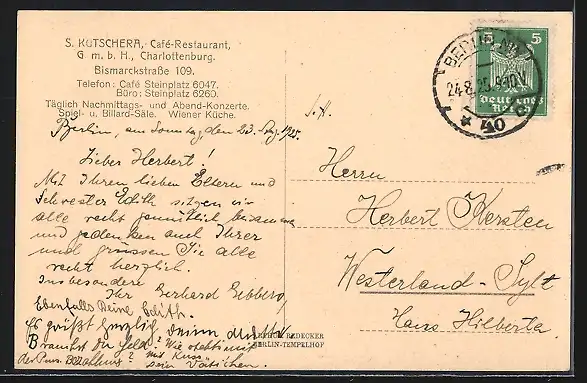 S. KUTSCHERA, Café-Restaurant,
G. m. b. H., Charlottenburg.
Bismarckstraße 109.
Telefon: Café Steinplatz 6047.
Büro: Steinplatz 6260.
Täglich Nachmittags- und Abend-Konzerte.
Spiel- u. Billard-Säle. Wiener Küche.
Berlin, am Sonntag, den 23. Aug. 1925.
Lieber Herbert!
Mit Ihren lieben Eltern und
Schwester Edith sitzen wir
alle recht gemütlich beisammen
und gedenken auch Ihrer
und grüssen Sie alle
recht herzlich.
Insbesondere
Ihr Gerhard
Ebenfalls Deine Edith.
Es grüßt herzlich deine Mutter
Brauchst du Geld? Wie steht's mit
der Bezahlung? Mit Kuss
dein Väterchen.
S. H.
Herrn
Herbert Kersten
Westerland-Sylt
Haus Hilberta
BERLIN
24.8.25
5
5
Deutsches
Reich
REDECKER
BERLIN-TEMPELHOF